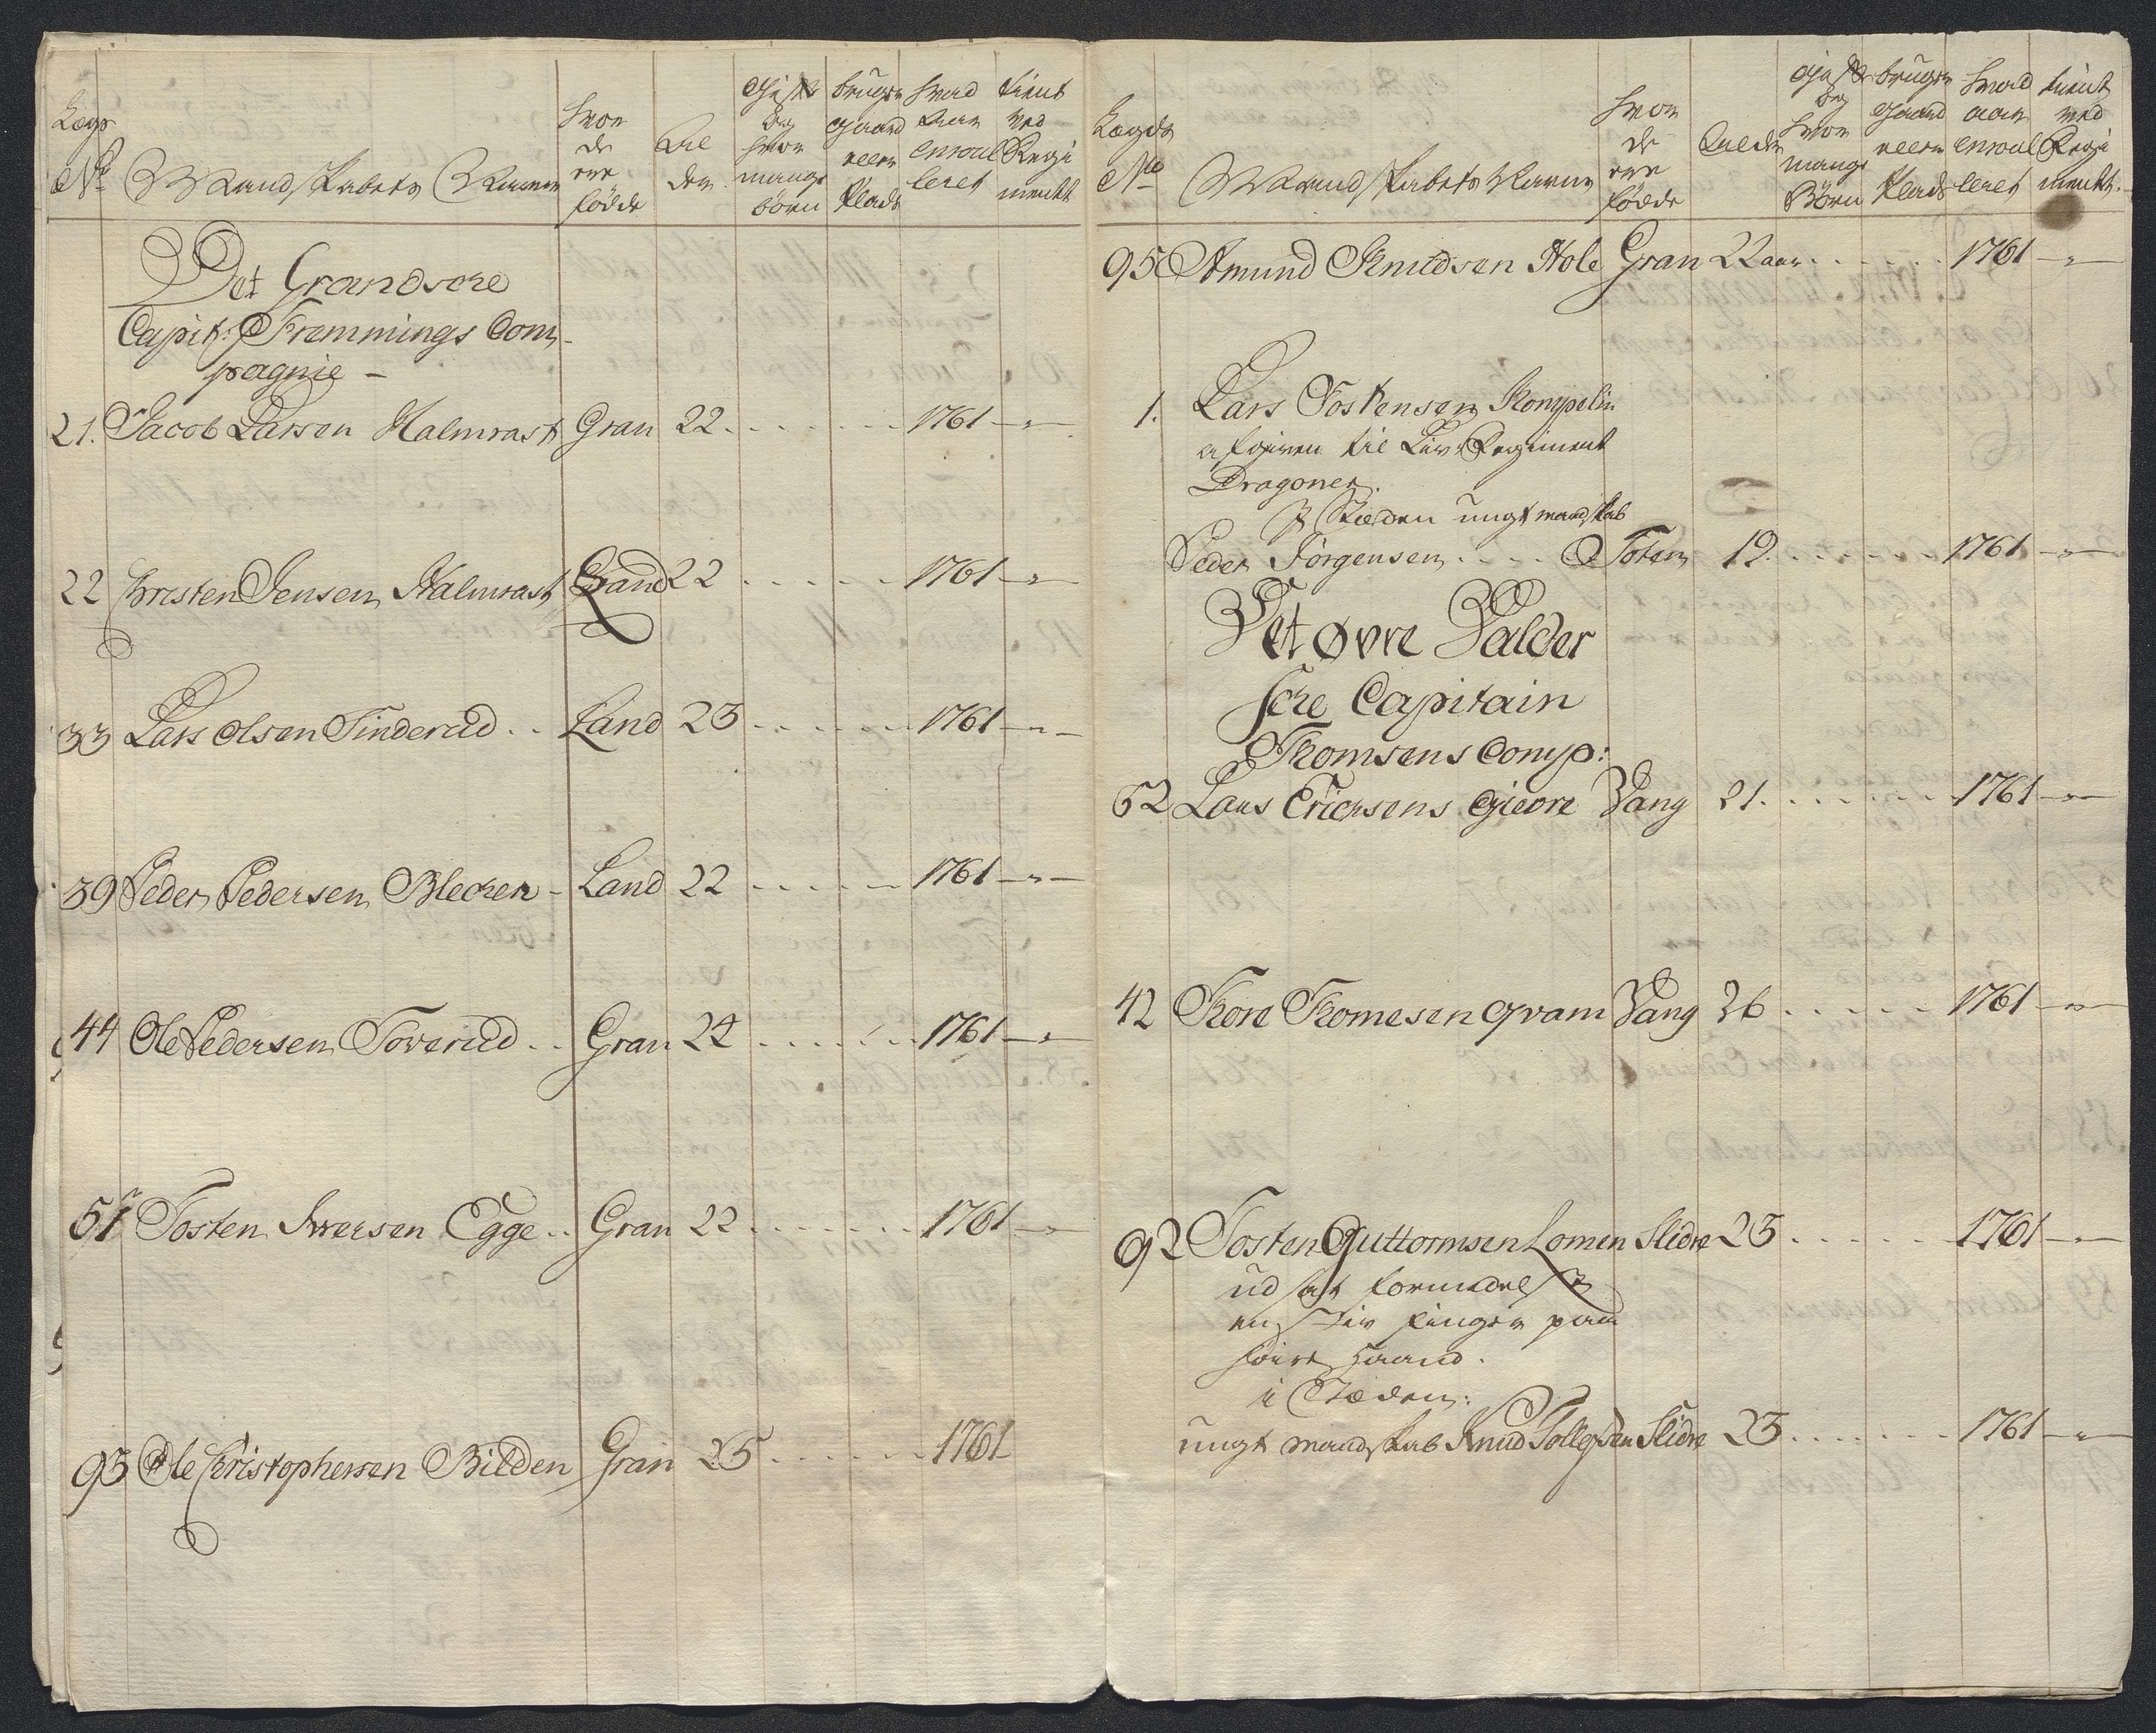 Lægs No Mandskabets Navne hvor de ere fødde Al der gift og hvor mange børn bruger gaard eller Plads hvad aar enroul leret tient ved Regi mentet
Det Grandsche
Capit: Fremmings Com-
pagnie -
21. Jacob Larsen Halmrast Gran 22. 1761 - " -
22 Christen Jensen Halmrast Land 22 1761 - " -
33 Lars Olsen Tinderud .. Land 23 1761 - " -
39 Peder Pedersen Blechen - Land 22 1761 - " -
44 Ole Pedersen Toverud .. Gran 24 1761 - " -
51 Tosten Iversen Egge .. Gran 22 1761 - " -
93 Ole Christophersen Bilden Gran 25 1761
Lægds No Mandskabets Navne hvor de ere fødde Alder gift og hvor mange Børn bruger gaard eller Plads hvad aar enroul leret tient ved Regi mentet.
95 Amund Knudsen Hole Gran 22 aar 1761 - " -
1. Lars Tostensen
afgiven til Liv Regiment
Dragoner.
I Stæden ungt mandskab
Peder Jørgensen Toten 19. 1761 - " -
Det øvre Valder
sche Capitain
Thomsens Comp:
62 Lars Erichsens Gievre Vang 21. 1761 - " -
42 Thore Thomesen Qvam Vang 26 1761 - " -
92 Tosten Guttormsen Lomen Slidre 23 1761 - " -
ud sat formedelst
en stiv finger paa
høire Haand.
i Stæden:
ungt mandskab Knud Tollefsen Slidre 23 1761 - " -